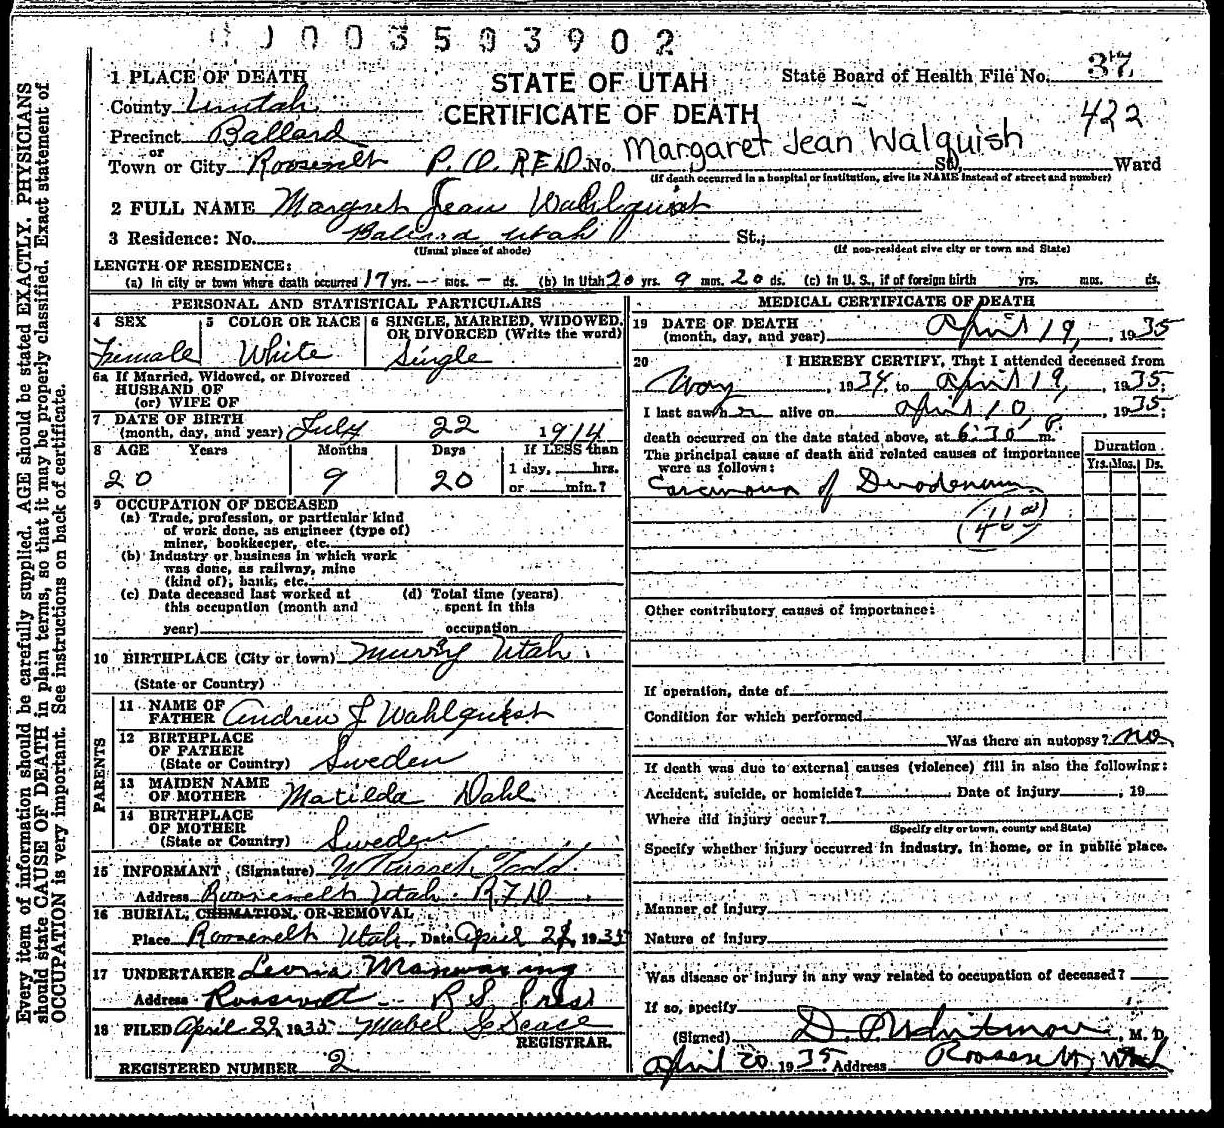 0 0 0 3 5 0 3 9 0 2
1 PLACE OF DEATH
STATE OF UTAH
State Board of Health File No. 37
County Uintah
CERTIFICATE OF DEATH
422
Precinct Ballard
or
Town or City Roosevelt P.O. RFD No. Margaret Jean Walquish St., Ward
(If death occurred in a hospital or institution, give its NAME instead of street and number)
2 FULL NAME Margret Jean Wahlquist
3 Residence: No. Ballard Utah St.;
(Usual place of abode) (If non-resident give city or town and State)
LENGTH OF RESIDENCE:
(a) In city or town where death occurred 17 yrs. — mos. — ds. (b) In Utah 20 yrs. 9 mos. 20 ds. (c) In U. S., if of foreign birth yrs. mos. ds.
PERSONAL AND STATISTICAL PARTICULARS
4 SEX 5 COLOR OR RACE 6 SINGLE, MARRIED, WIDOWED, OR DIVORCED (Write the word)
Female White Single
6a If Married, Widowed, or Divorced
HUSBAND OF
(or) WIFE OF
7 DATE OF BIRTH
(month, day, and year) July 22 1914
8 AGE Years Months Days If LESS than
1 day, hrs.
20 9 20 or min.?
9 OCCUPATION OF DECEASED
(a) Trade, profession, or particular kind
of work done, as engineer (type of)
miner, bookkeeper, etc.
(b) Industry or business in which work
was done, as railway, mine
(kind of), bank, etc.
(c) Date deceased last worked at (d) Total time (years)
this occupation (month and spent in this
year) occupation
10 BIRTHPLACE (City or town) Murry Utah.
(State or Country)
PARENTS
11 NAME OF
FATHER Andrew J Wahlquist
12 BIRTHPLACE
OF FATHER
(State or Country) Sweden
13 MAIDEN NAME
OF MOTHER Matilda Dahl
14 BIRTHPLACE
OF MOTHER
(State or Country) Sweden
15 INFORMANT (Signature) W Russell Todd
Address Roosevelt Utah. R.F.D.
16 BURIAL, CREMATION, OR REMOVAL
Place Roosevelt Utah Date April 1935
17 UNDERTAKER Manwaring
Address Roosevelt
18 FILED April 22 1935 Mabel
REGISTRAR.
REGISTERED NUMBER 2
MEDICAL CERTIFICATE OF DEATH
19 DATE OF DEATH
(month, day, and year) April 19, 1935
20 I HEREBY CERTIFY, That I attended deceased from
1934 to April 19, 1935;
I last saw h er alive on April 10, 1935;
death occurred on the date stated above, at 6:30 P. m.
The principal cause of death and related causes of importance
were as follows:
Duration
Yrs. Mos. Ds.
Carcinoma of Duodenum
(46a)
Other contributory causes of importance:
If operation, date of
Condition for which performed
Was there an autopsy? no
If death was due to external causes (violence) fill in also the following:
Accident, suicide, or homicide? Date of injury , 19
Where did injury occur?
(Specify city or town, county and State)
Specify whether injury occurred in industry, in home, or in public place.
Manner of injury
Nature of injury
Was disease or injury in any way related to occupation of deceased?
If so, specify
(Signed) D. P. Whitmore, M. D.
April 20 1935 Address Roosevelt, Utah
Every item of information should be carefully supplied. AGE should be stated EXACTLY. PHYSICIANS
should state CAUSE OF DEATH in plain terms, so that it may be properly classified. Exact statement of
OCCUPATION is very important. See instructions on back of certificate.